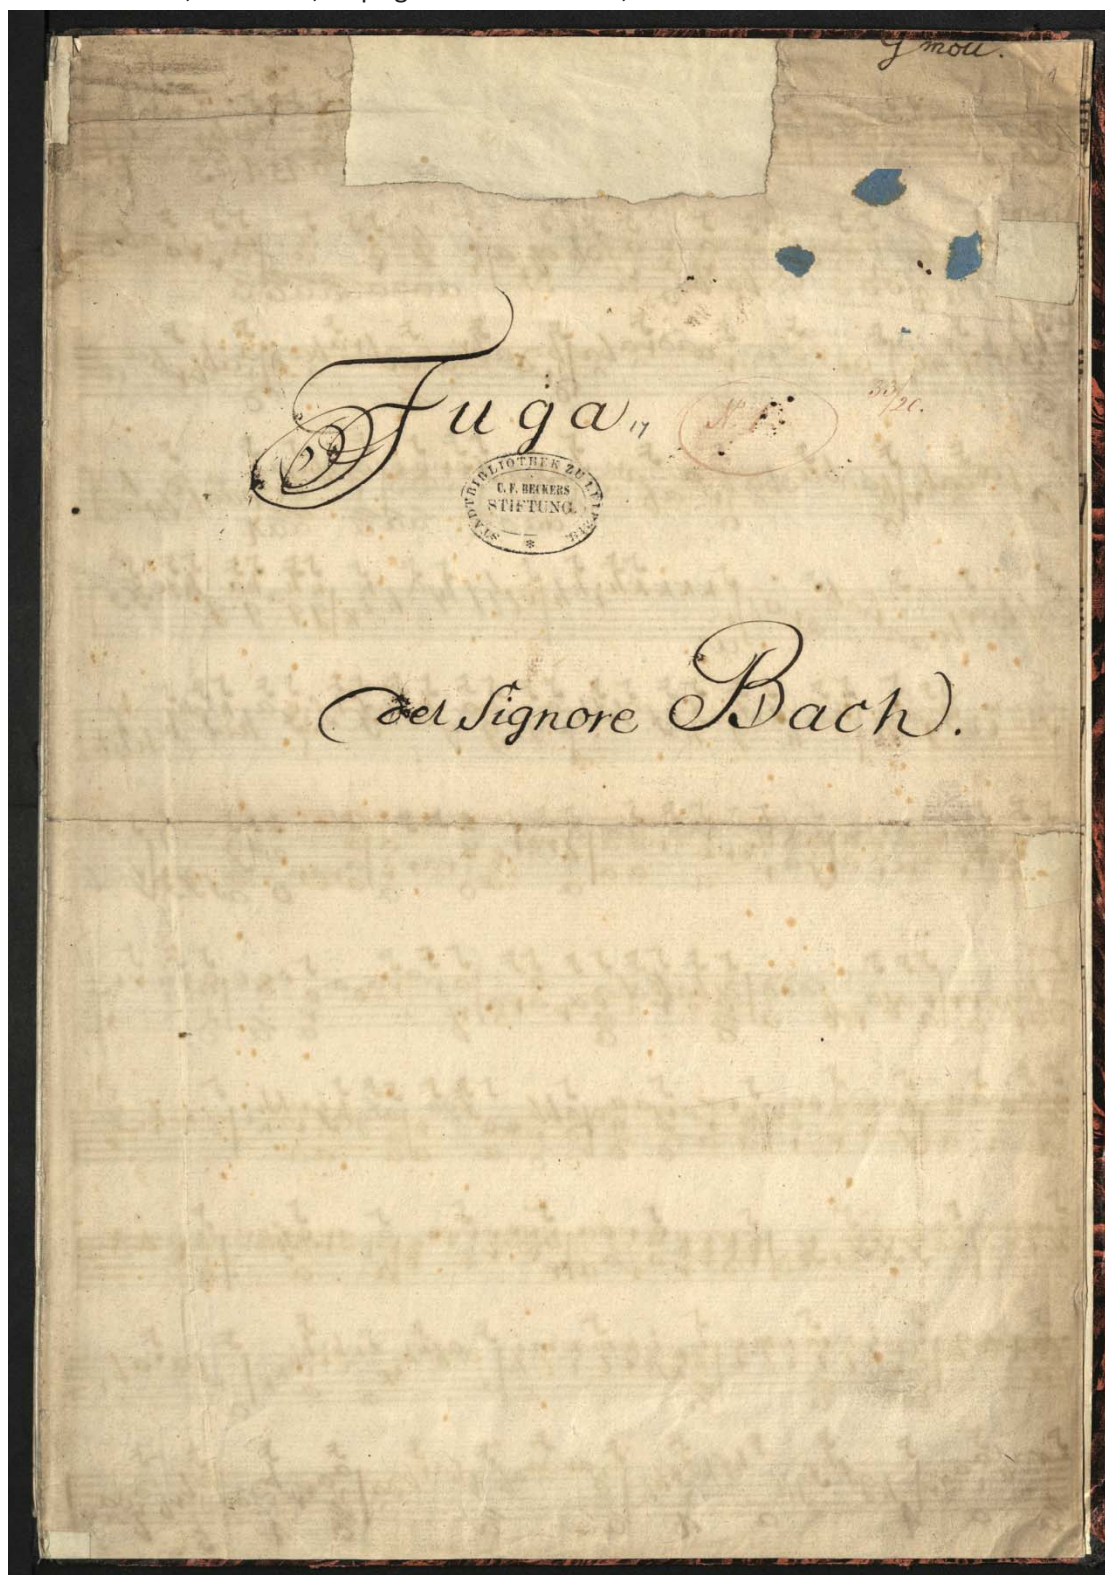 G moll.
1
Fuga
33/20.
STADTBIBLIOTHEK ZU LEIPZIG.
C. F. BECKERS
STIFTUNG.
*
del Signore Bach.